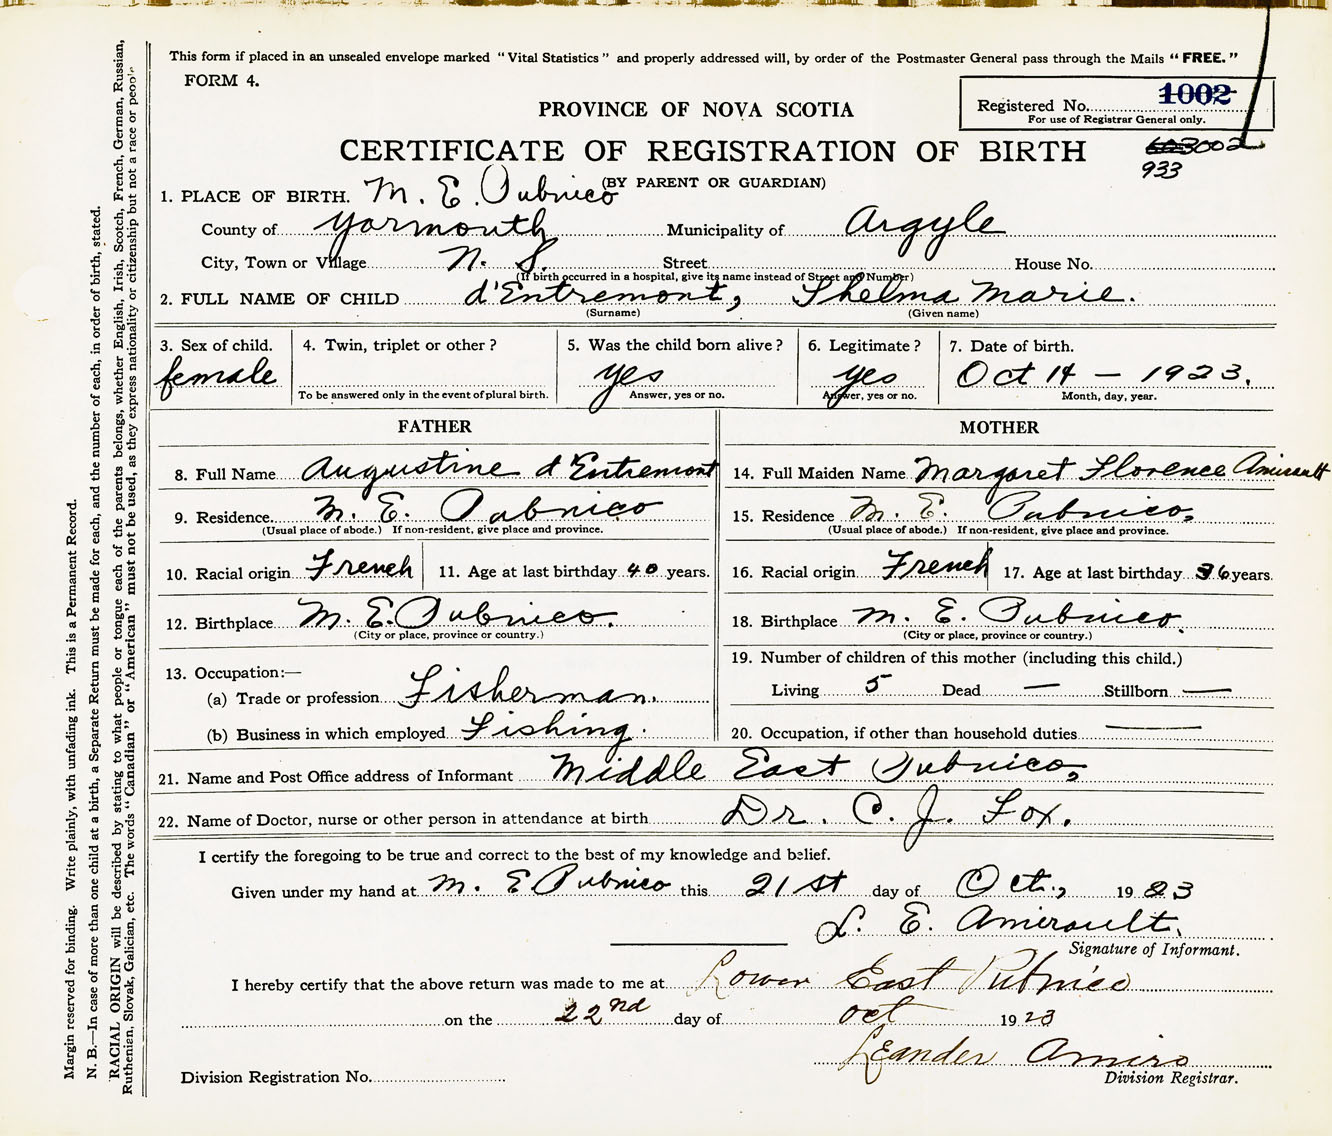 This form if placed in an unsealed envelope marked "Vital Statistics" and properly addressed will, by order of the Postmaster General pass through the Mails "FREE."
FORM 4.
PROVINCE OF NOVA SCOTIA
Registered No. 1002
For use of Registrar General only.
CERTIFICATE OF REGISTRATION OF BIRTH
3002
933
(BY PARENT OR GUARDIAN)
1. PLACE OF BIRTH. M. E. Pubnico
County of Yarmouth Municipality of Argyle
City, Town or Village N. S. Street House No.
(If birth occurred in a hospital, give its name instead of Street and Number)
2. FULL NAME OF CHILD d'Entremont, Thelma Marie.
(Surname) (Given name)
3. Sex of child. 4. Twin, triplet or other? 5. Was the child born alive? 6. Legitimate? 7. Date of birth.
female yes yes Oct 14 – 1923.
To be answered only in the event of plural birth. Answer, yes or no. Answer, yes or no. Month, day, year.
FATHER MOTHER
8. Full Name Augustine d'Entremont 14. Full Maiden Name Margaret Florence Amirault
9. Residence. M. E. Pubnico 15. Residence M. E. Pubnico,
(Usual place of abode.) If non-resident, give place and province. (Usual place of abode.) If non-resident, give place and province.
10. Racial origin French 11. Age at last birthday 40 years. 16. Racial origin French 17. Age at last birthday 36 years.
12. Birthplace M. E. Pubnico. 18. Birthplace M. E. Pubnico.
(City or place, province or country.) (City or place, province or country.)
19. Number of children of this mother (including this child.)
13. Occupation:—
Living 5 Dead — Stillborn —
(a) Trade or profession Fisherman.
(b) Business in which employed Fishing. 20. Occupation, if other than household duties —
21. Name and Post Office address of Informant Middle East Pubnico,
22. Name of Doctor, nurse or other person in attendance at birth Dr. C. J. Fox.
I certify the foregoing to be true and correct to the best of my knowledge and belief.
Given under my hand at M. E Pubnico this 21st day of Oct., 1923
L. E. Amirault.
Signature of Informant.
I hereby certify that the above return was made to me at Lower East Pubnico
on the 22nd day of oct 1923
LEander Amiro
Division Registrar.
Division Registration No.
Margin reserved for binding. Write plainly, with unfading ink. This is a Permanent Record.
N. B.—In case of more than one child at a birth, a Separate Return must be made for each, and the number of each, in order of birth, stated.
RACIAL ORIGIN will be described by stating to what people or tongue each of the parents belongs, whether English, Irish, Scotch, French, German, Russian,
Ruthenian, Slovak, Galician, etc. The words "Canadian" or "American" must not be used, as they express nationality or citizenship but not a race or people